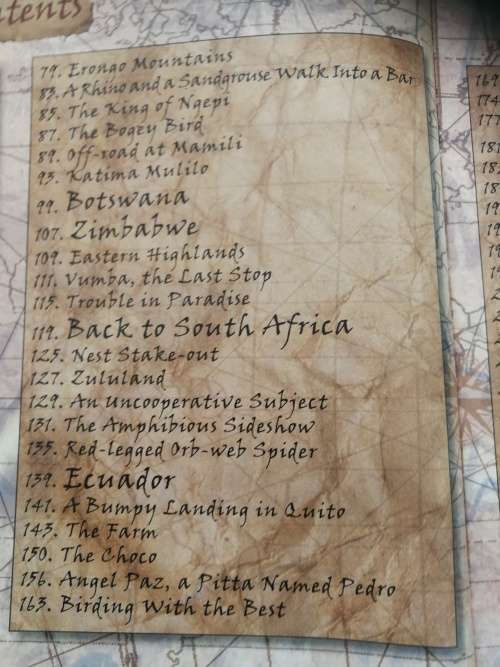 79. Erongo Mountains
83. A Rhino and a Sandgrouse Walk Into a Bar
85. The King of Ngepi
87. The Bogey Bird
89. Off-road at Mamili
93. Katima Mulilo
99. Botswana
107. Zimbabwe
109. Eastern Highlands
111. Vumba, the Last Stop
115. Trouble in Paradise
119. Back to South Africa
125. Nest Stake-out
127. Zululand
129. An Uncooperative Subject
131. The Amphibious Sideshow
135. Red-legged Orb-web Spider
139. Ecuador
141. A Bumpy Landing in Quito
143. The Farm
150. The Choco
156. Angel Paz, a Pitta Named Pedro
163. Birding With the Best
169
174
177